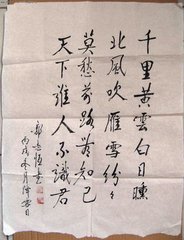 千里黄雲白日曛
北風吹雁雪紛々
莫愁前路無知己
天下誰人不識君
丙戌冬月